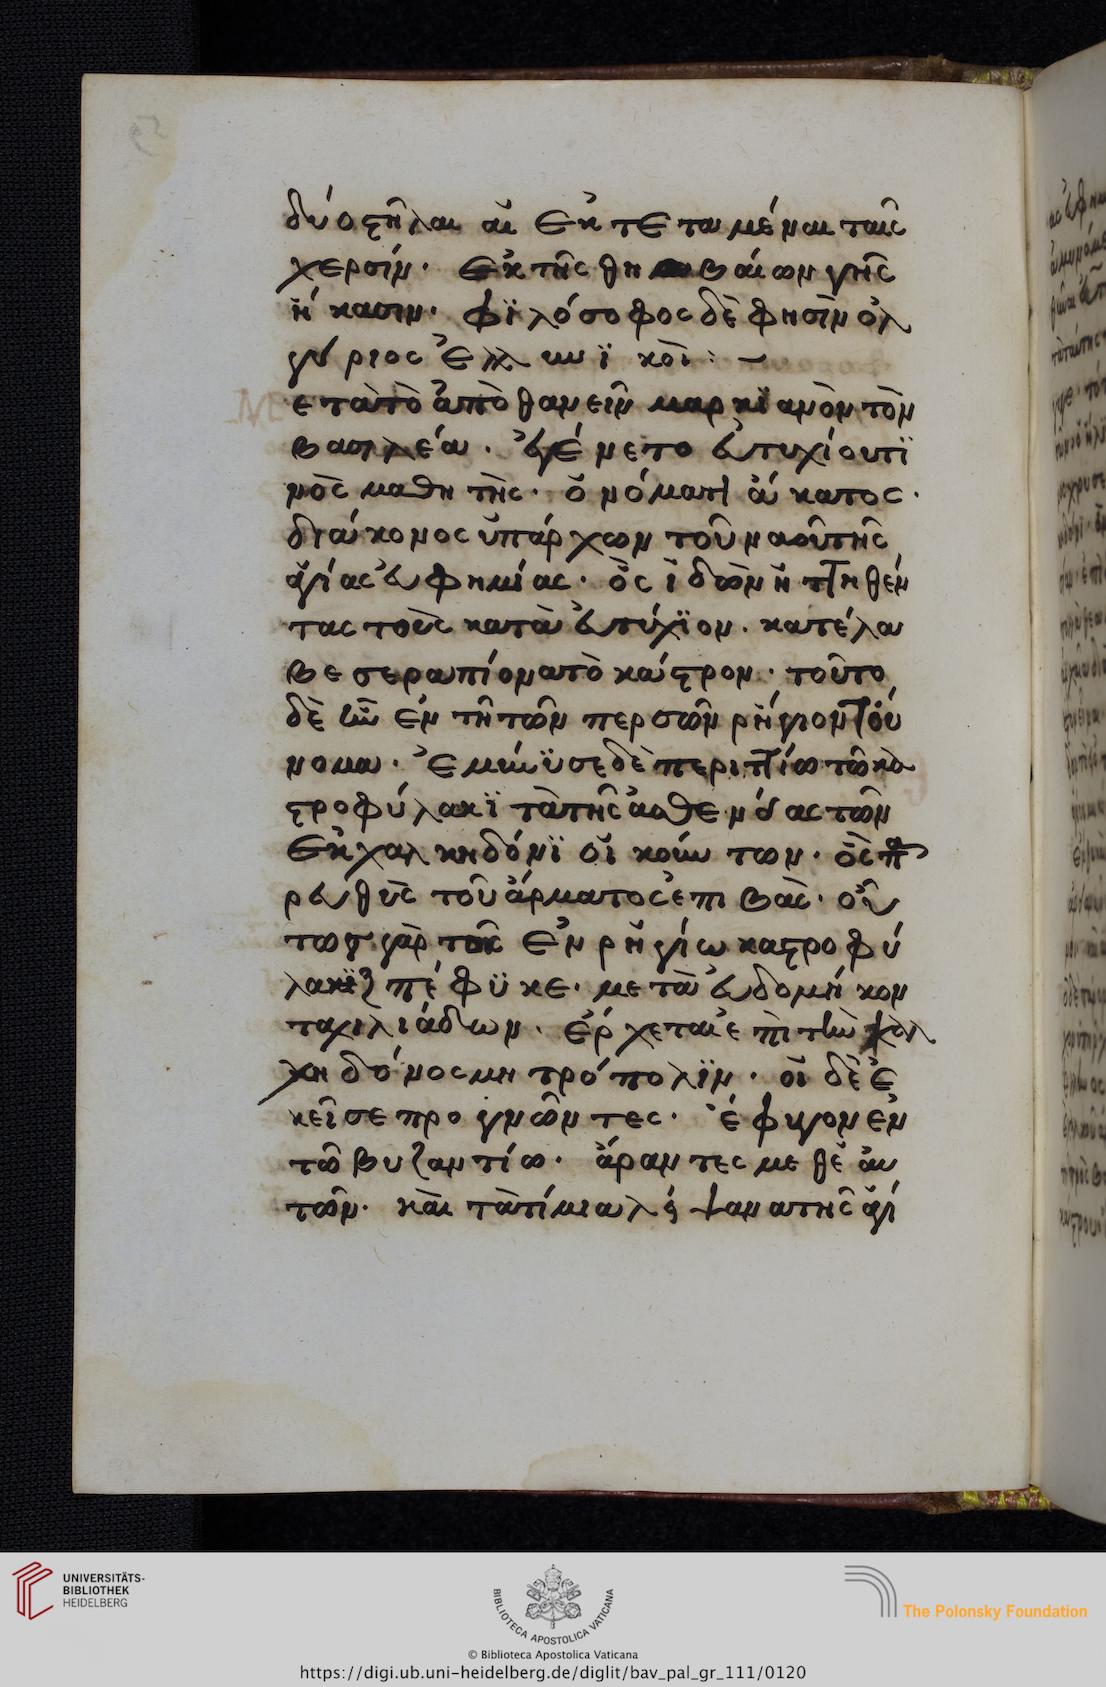 δύο στῆλαι αἱ ἐκτεταμέναι ταῖς
χερσίν· ἐκ τῆς θηβαίων γῆς
ἥκασιν· φϊλόσοφος δὲ φησὶν ὀλ
γύριος ἑλλαωϊκοὶ:
ετὰ τὸ ἀποθανεῖν μαρκϊανὸν τὸν
βασιλέα. ἐγένετο εὐτυχίου τϊ
μὸς μαθητὴς· ὀνόματι ἄκατος·
διάκονος ὑπάρχων τοῦ ναοῦ τῆς
ἁγίας εὐφημίας· ὃς ἰδὼν ἡττηθέν
τας τοὺς κατὰ εὐτύχϊον. κατέλα
βε σεραπίονα τὸ κάστρον· τοῦτο
δὲ ἦν ἐν τῆ τῶν περσῶν ρήγιον τοὔ
νομα. ἐμήνϋσε δὲ περιττίω τῶ κα
στροφύλακϊ τὰ τῆς ἀσθενείας τῶν
ἐκ χαλκηδόνϊ οἰκούντων· ὃς πα
ρευθὺς τοῦ ἅρματος ἐπιβὰς· οὗ
τος γὰρ τοῖς ἐν ρηγίω καστροφύ
λακϊ πέφϋκε· μετὰ ἑβδομήκον
τα χιλιάδων. ἔρχεται ἐπὶ τὴν χαλ
κηδόνος μητρόπολϊν· οἱ δὲ ἐ
κεῖσε προγνῶντες· ἔφυγον ἐν
τῶ βυζαντίω· ἄραντες μεθ' ἑαυ
τῶν· καὶ τὰ τίμια λείψανα τῆς ἁγί
UNIVERSITÄTS-
BIBLIOTHEK
HEIDELBERG
BIBLIOTECA APOSTOLICA VATICANA
The Polonsky Foundation
© Biblioteca Apostolica Vaticana
https://digi.ub.uni-heidelberg.de/diglit/bav_pal_gr_111/0120